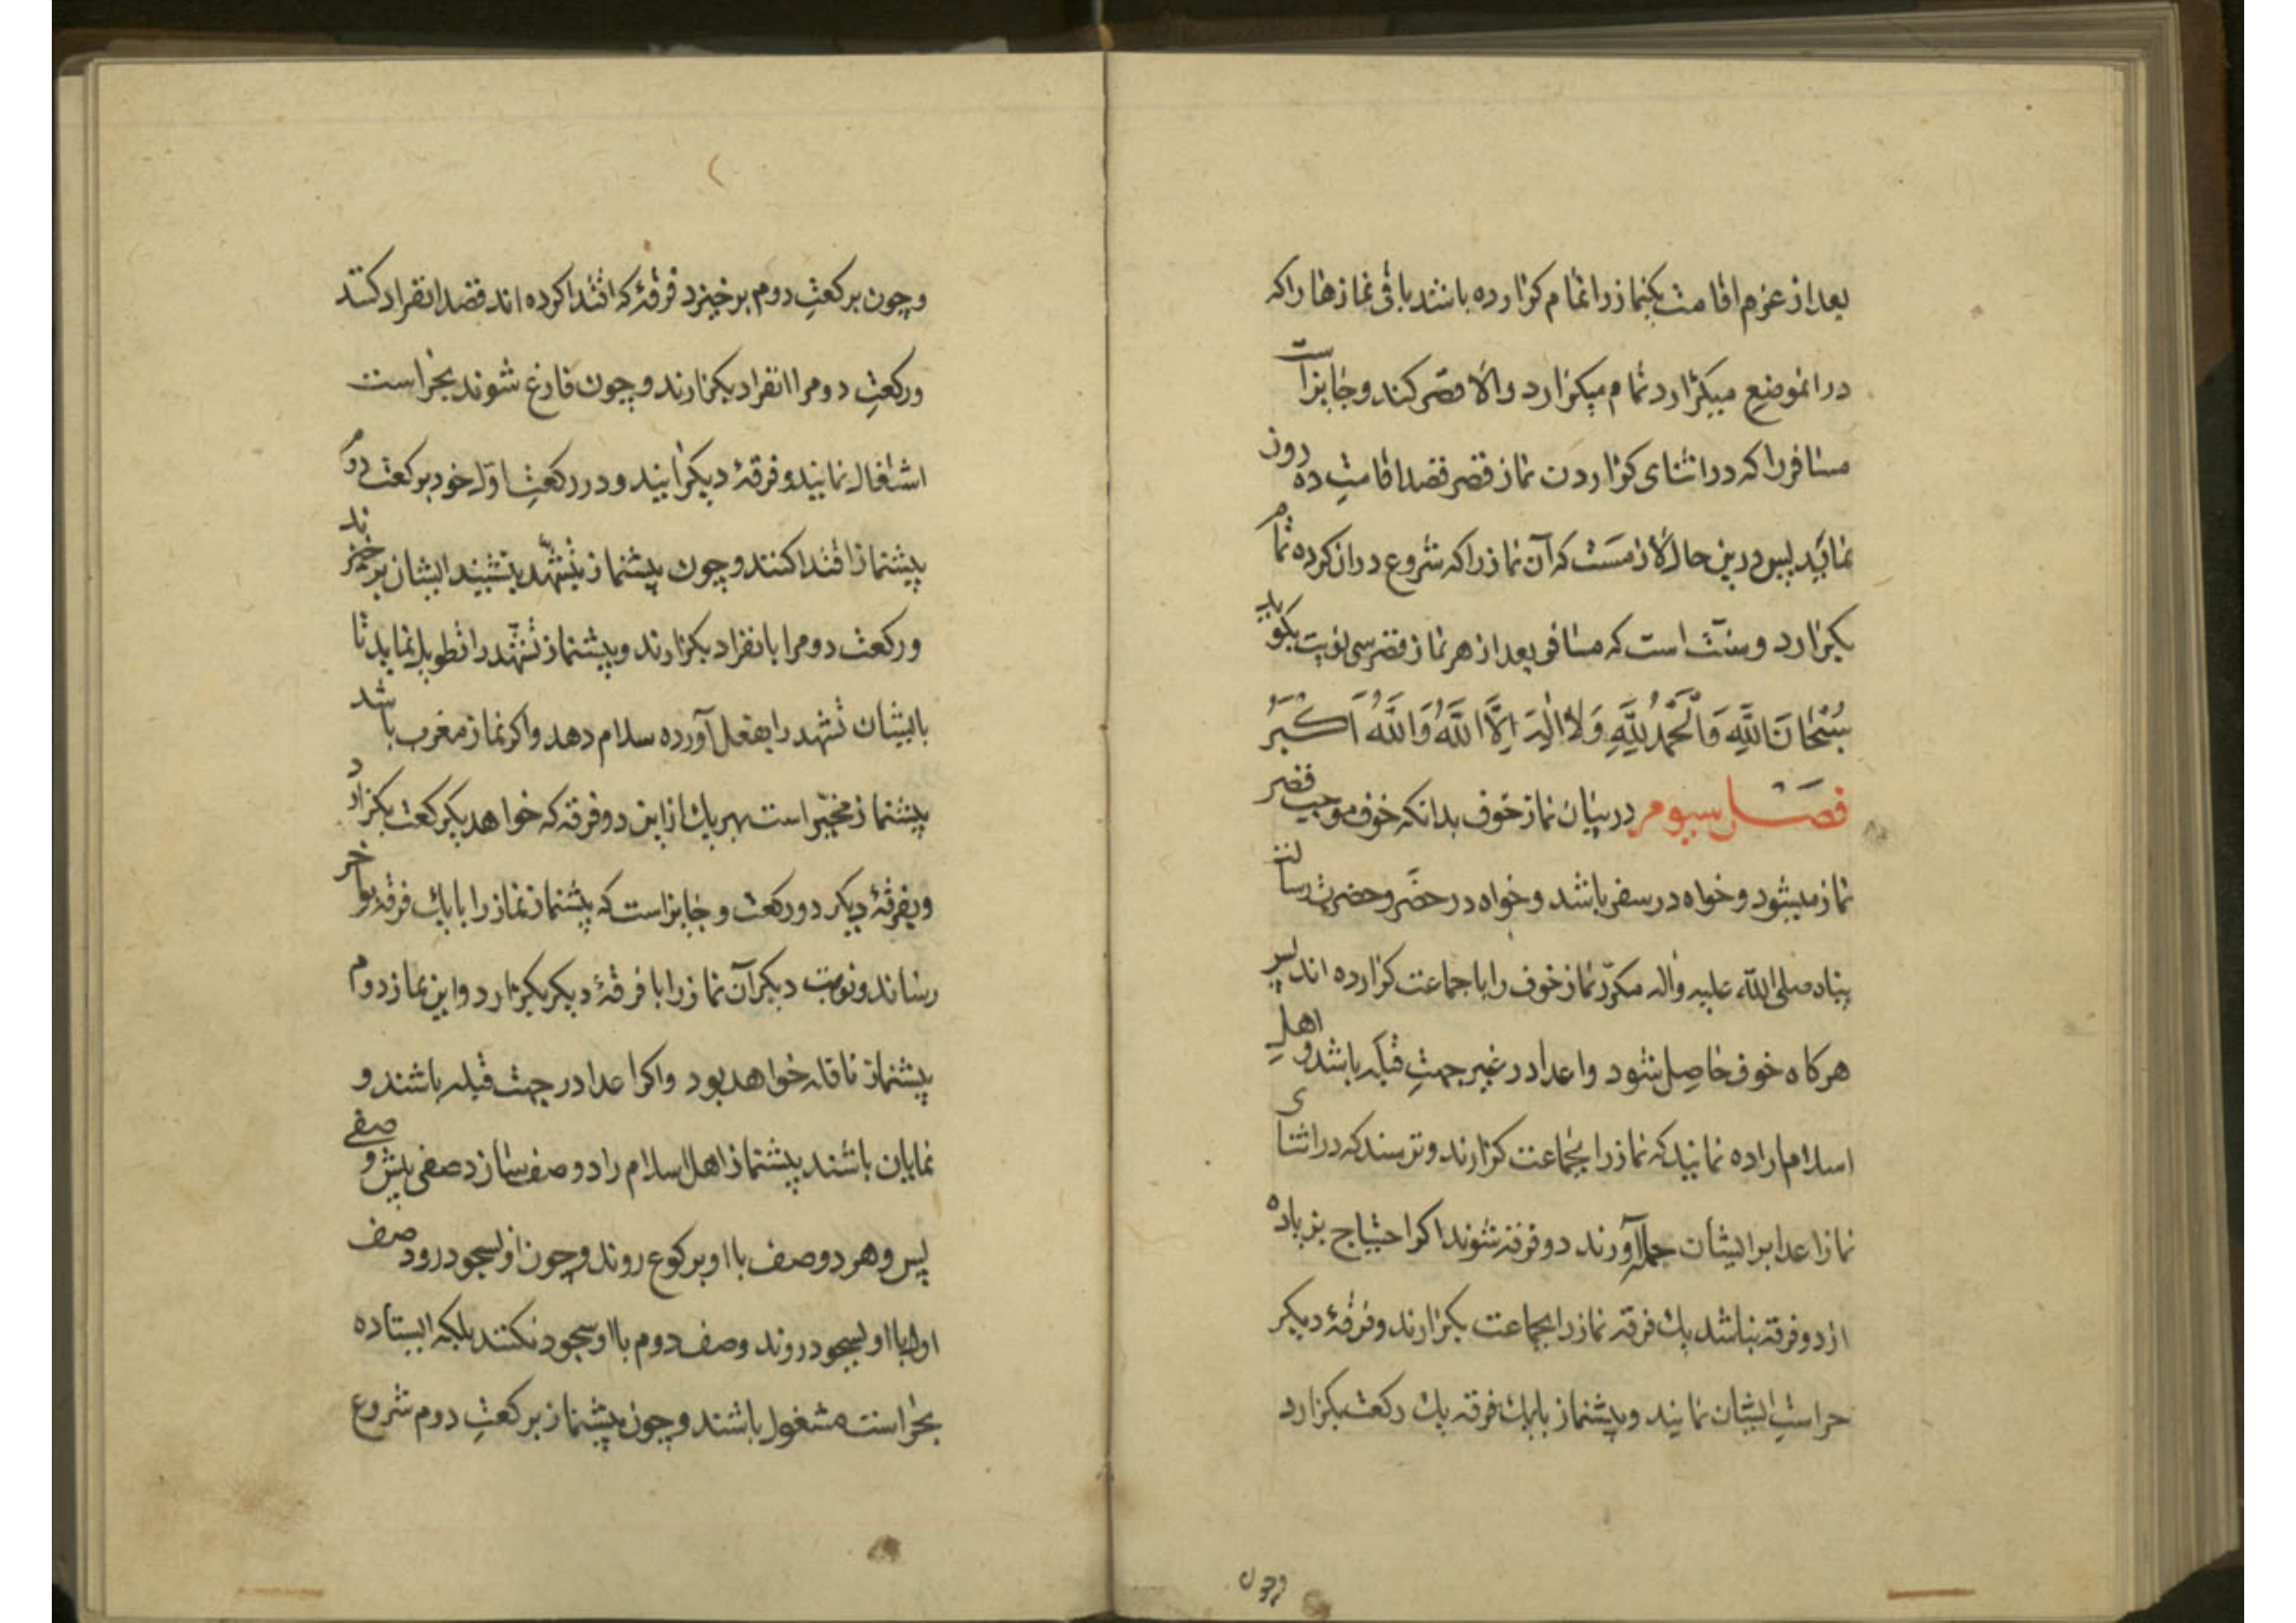 بعد از عزم اقامت یکنماز را تمام کزارده باشد باقی نمازها را که
درانموضع میکزارد تمام میکزارد والا قصر کند و جایز است
مسافر را که در اثنای کزاردن نماز قصر قصد اقامت ده روز
نماید پس درین حال لازمست که آن نماز را که شروع دران کرده تمام
بکزارد و سنّت است که مسافر بعد از هر نماز قصر سی نوبت بکوید
سُبْحَانَ اللَّهِ وَالْحَمْدُ لِلَّهِ وَلَا إِلَهَ إِلَّا اللَّهُ وَاللَّهُ أَكْبَرُ
فصل سیوم در بیان نماز خوف بدانکه خوف موجب قصر
نماز میشود و خواه در سفر باشد و خواه در حضر و حضرت رسالت
پناه صلی الله علیه واله مکرّر نماز خوف را با جماعت کزارده اند پس
هرکاه خوف حاصل شود و اعدا در غیر جهت قبله باشد و اهل
اسلام اراده نمایند که نماز را بجماعت کزارند و ترسند که در اثنای
نماز اعدا بر ایشان حمله آورند دو فرقه شوند اکر احتیاج بزیاده
از دو فرقه نباشد یک فرقه نماز را بجماعت بکزارند و فرقهٔ دیکر
حراست ایشان نمایند و پیشنماز با یک فرقه یک رکعت بکزارد
وچون
وچون برکعت دوم برخیزد فرقهٔ که اقتدا کرده اند قصد انفراد کنند
و رکعت دوم را انفراد بکزارند و چون فارغ شوند بحراست
اشتغال نمایند و فرقهٔ دیکر آیند و در رکعت اوّل خود برکعت دوم
پیشنماز اقتدا کنند و چون پیشنماز بتشهّد بنشیند ایشان برخیزند
و رکعت دوم را بانفراد بکزارند و پیشنماز تشهّد را تطویل نماید تا
بایشان تشهد را بفعل آورده سلام دهد و اکر نماز مغرب باشد
پیشنماز مخیّر است بهر یک از این دو فرقه که خواهد یکرکعت بکزارد
و بفرقهٔ دیکر دو رکعت و جایز است که پیشنماز نماز را با یک فرقه بواخر
رساند و نوبت دیکر آن نماز را با فرقهٔ دیکر بکزارد و این نماز دوم
پیشنماز نافله خواهد بود و اکر اعدا در جهت قبله باشند و
نمایان باشند پیشنماز اهل اسلام را دو صف سازد صفی پیش و صفی
پس و هر دو صف با او برکوع روند و چون او بسجود رود صف
اول با او بسجود روند وصف دوم با او سجود نکنند بلکه ایستاده
بحراست مشغول باشند و چون پیشنماز برکعت دوم شروع